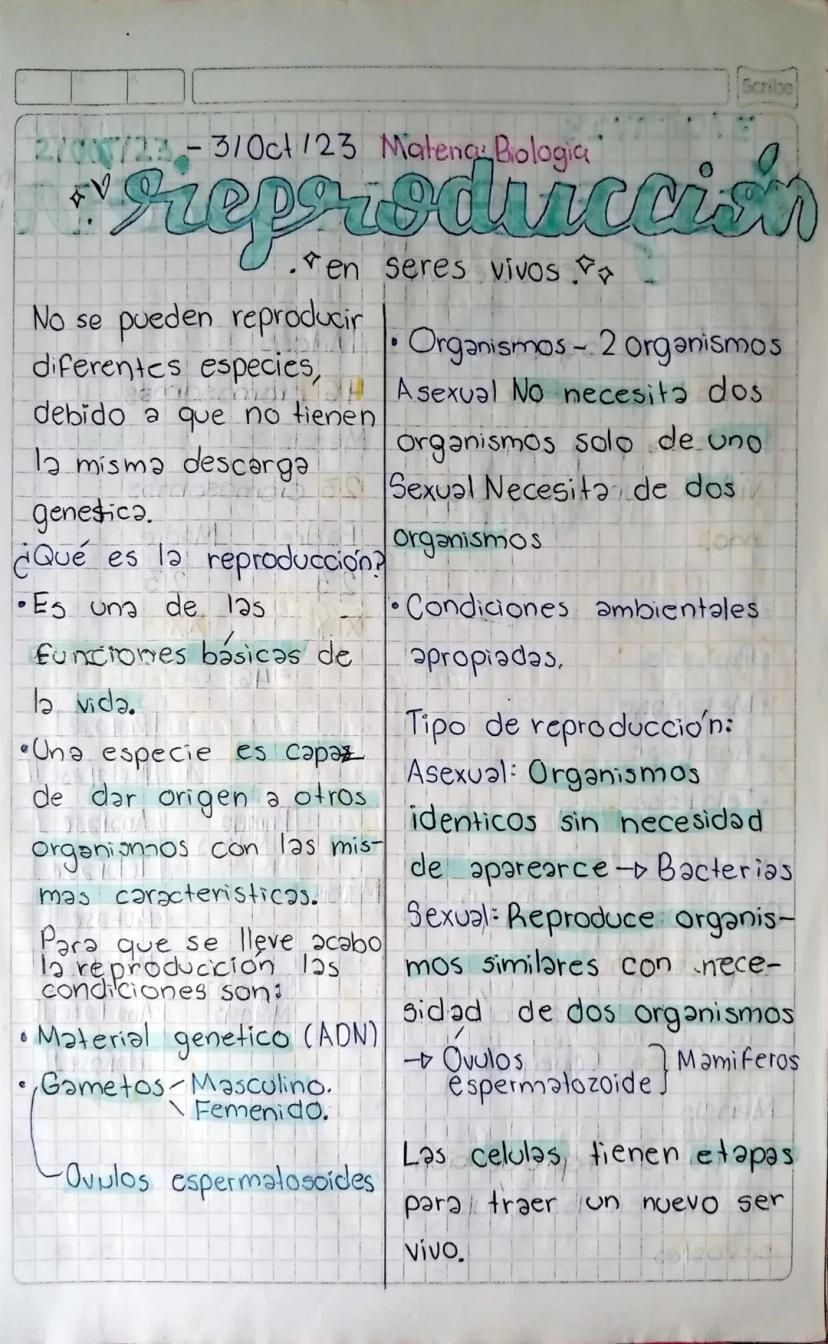 Scribe
2/Oct/23 - 3/Oct/23 Materia: Biologia
reproducción
en seres vivos
No se pueden reproducir
diferentes especies,
debido a que no tienen
la misma descarga
genetica.
¿Qué es la reproducción?
• Es una de las
funciones básicas de
la vida.
• Una especie es capaz
de dar origen a otros
organismos con las mis-
mas caracteristicas.
Para que se lleve acabo
la reproducción las
condiciones son:
• Material genetico (ADN)
• Gametos - Masculino.
\ Femenido.
Ovulos espermatosoides
• Organismos - 2 organismos
Asexual No necesita dos
organismos solo de uno
Sexual Necesita de dos
organismos
• Condiciones ambientales
apropiadas.
Tipo de reproducción:
Asexual: Organismos
identicos sin necesidad
de aparearce → Bacterias
Sexual: Reproduce organis-
mos similares con nece-
sidad de dos organismos
→ Óvulos
espermatozoide } Mamiferos
Las celulas tienen etapas
para traer un nuevo ser
vivo.